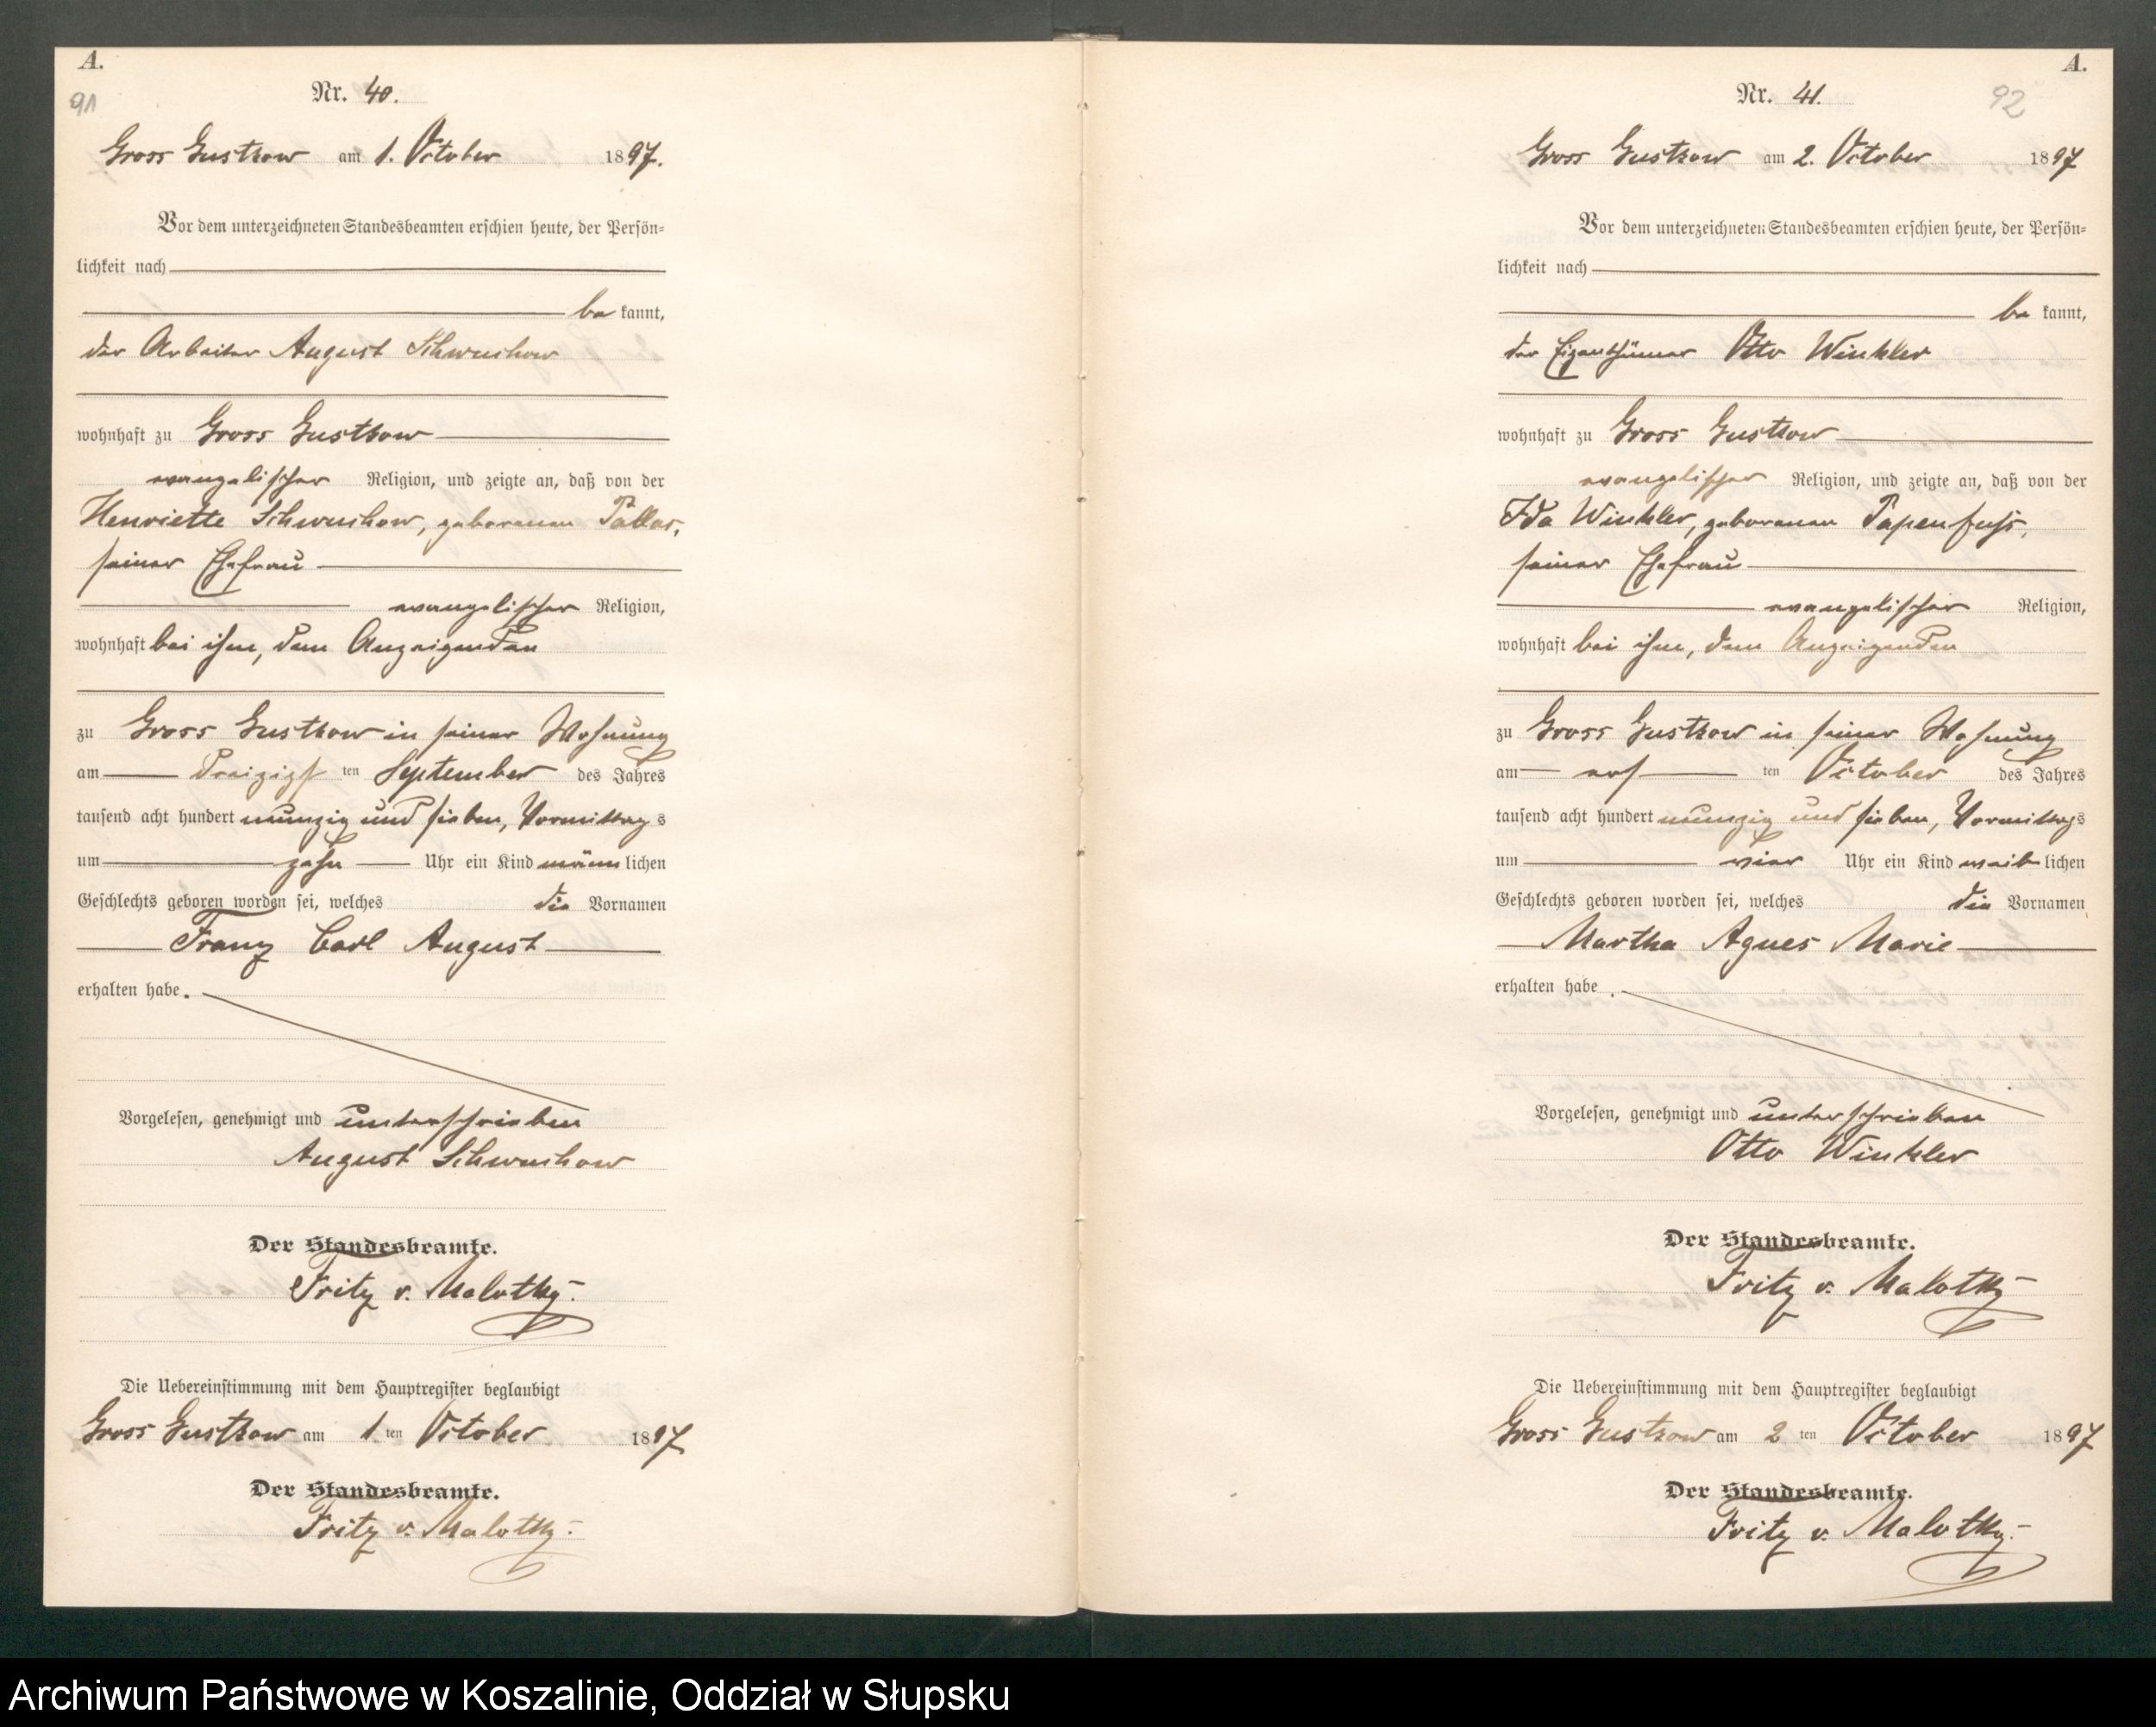 A.
91
Nr. 40.
Gross Gustkow am 1. October 1897.
Vor dem unterzeichneten Standesbeamten erschien heute, der Persön-
lichkeit nach
be kannt,
der Arbeiter August Schwuchow
wohnhaft zu Gross Gustkow
evangelischer Religion, und zeigte an, daß von der
Henriette Schwuchow, geborenen Pallas,
seiner Ehefrau
evangelischer Religion,
wohnhaft bei ihm, dem Anzeigenden
zu Gross Gustkow in seiner Wohnung
am dreizigst ten September des Jahres
tausend acht hundert neunzig und sieben, Vormittag s
um zehn Uhr ein Kind männ lichen
Geschlechts geboren worden sei, welches die Vornamen
Franz Carl August
erhalten habe.
Vorgelesen, genehmigt und unterschrieben
August Schwuchow
Der Standesbeamte.
Fritz v. Malottky.
Die Uebereinstimmung mit dem Hauptregister beglaubigt
Gross Gustkow am 1 ten October 1897
Der Standesbeamte.
Fritz v. Malottky.
A.
92
Nr. 41.
Gross Gustkow am 2. October 1897
Vor dem unterzeichneten Standesbeamten erschien heute, der Persön-
lichkeit nach
be kannt,
der Eigenthümer Otto Winkler
wohnhaft zu Gross Gustkow
evangelischer Religion, und zeigte an, daß von der
Ida Winkler, geborenen Papenfuss,
seiner Ehefrau
evangelischer Religion,
wohnhaft bei ihm, dem Anzeigenden
zu Gross Gustkow in seiner Wohnung
am ers ten October des Jahres
tausend acht hundert neunzig und sieben, Vormittags
um vier Uhr ein Kind weib lichen
Geschlechts geboren worden sei, welches die Vornamen
Martha Agnes Marie
erhalten habe.
Vorgelesen, genehmigt und unterschrieben
Otto Winkler
Der Standesbeamte.
Fritz v. Malottky
Die Uebereinstimmung mit dem Hauptregister beglaubigt
Gross Gustkow am 2 ten October 1897
Der Standesbeamte.
Fritz v. Malottky.
Archiwum Państwowe w Koszalinie, Oddział w Słupsku